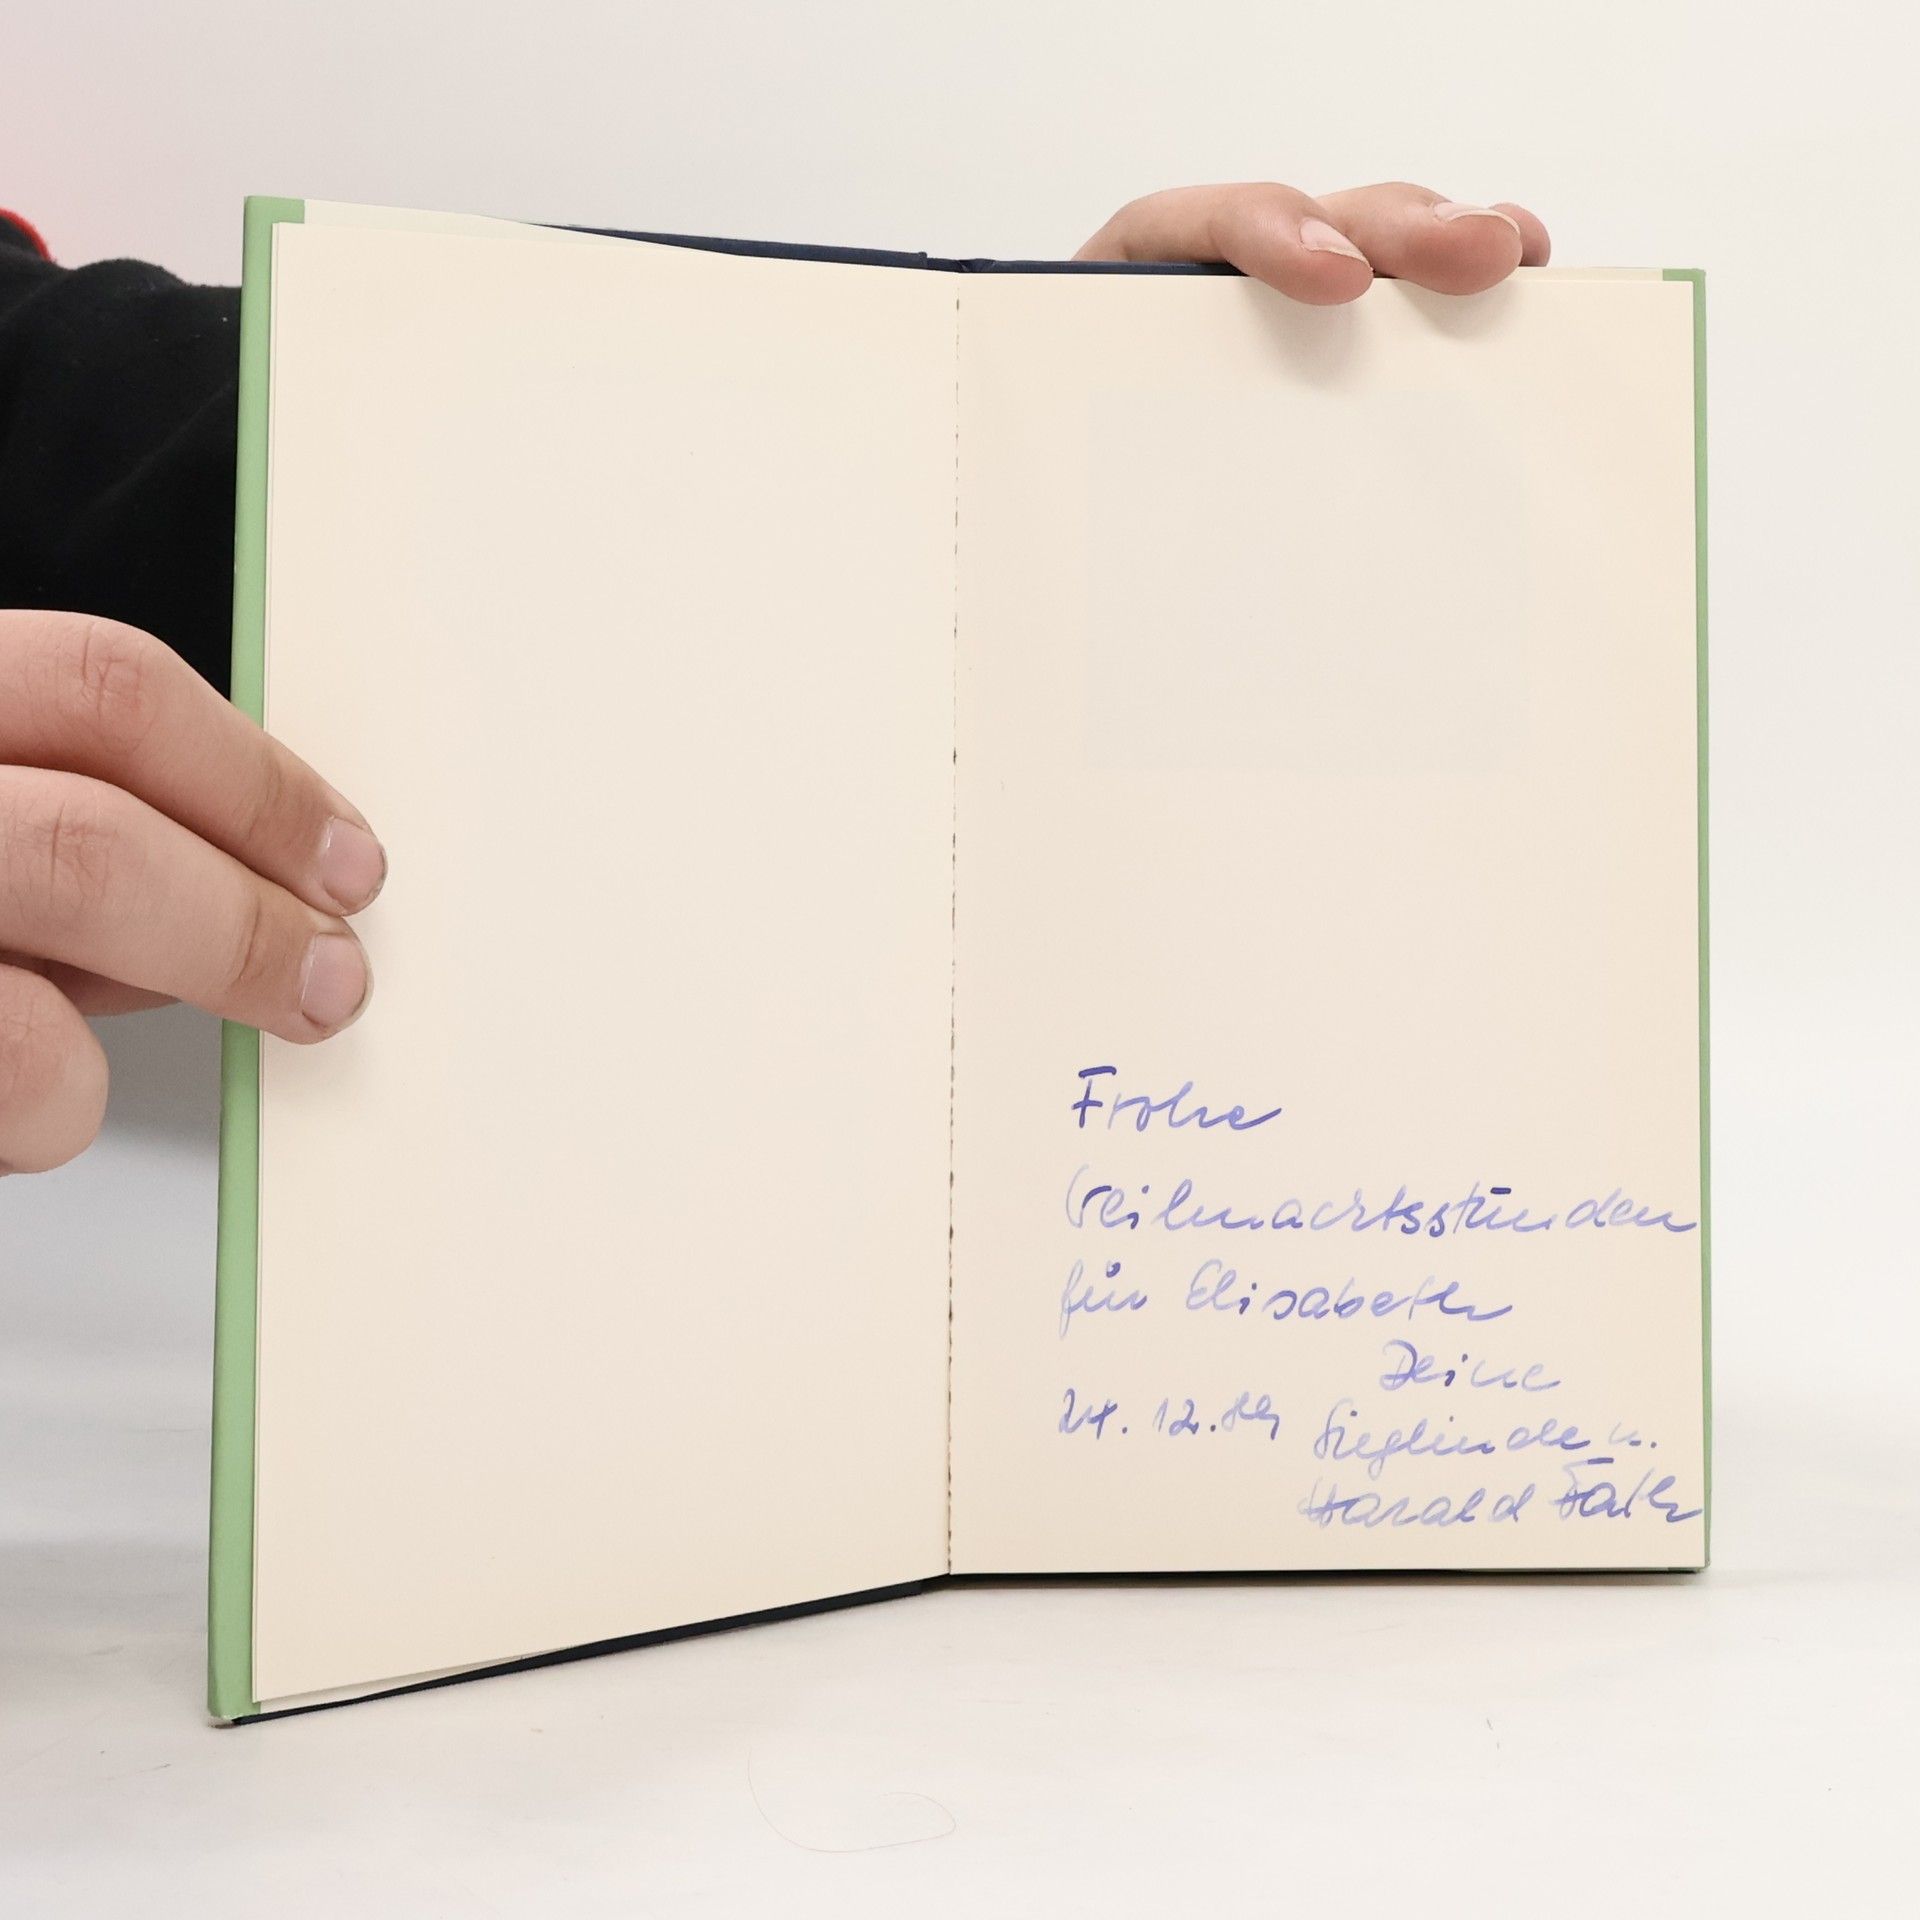 Frohe
Weihnachtsstunden
für Elisabeth
Deine
24. 12. Sieglinde u.
Harald Fath